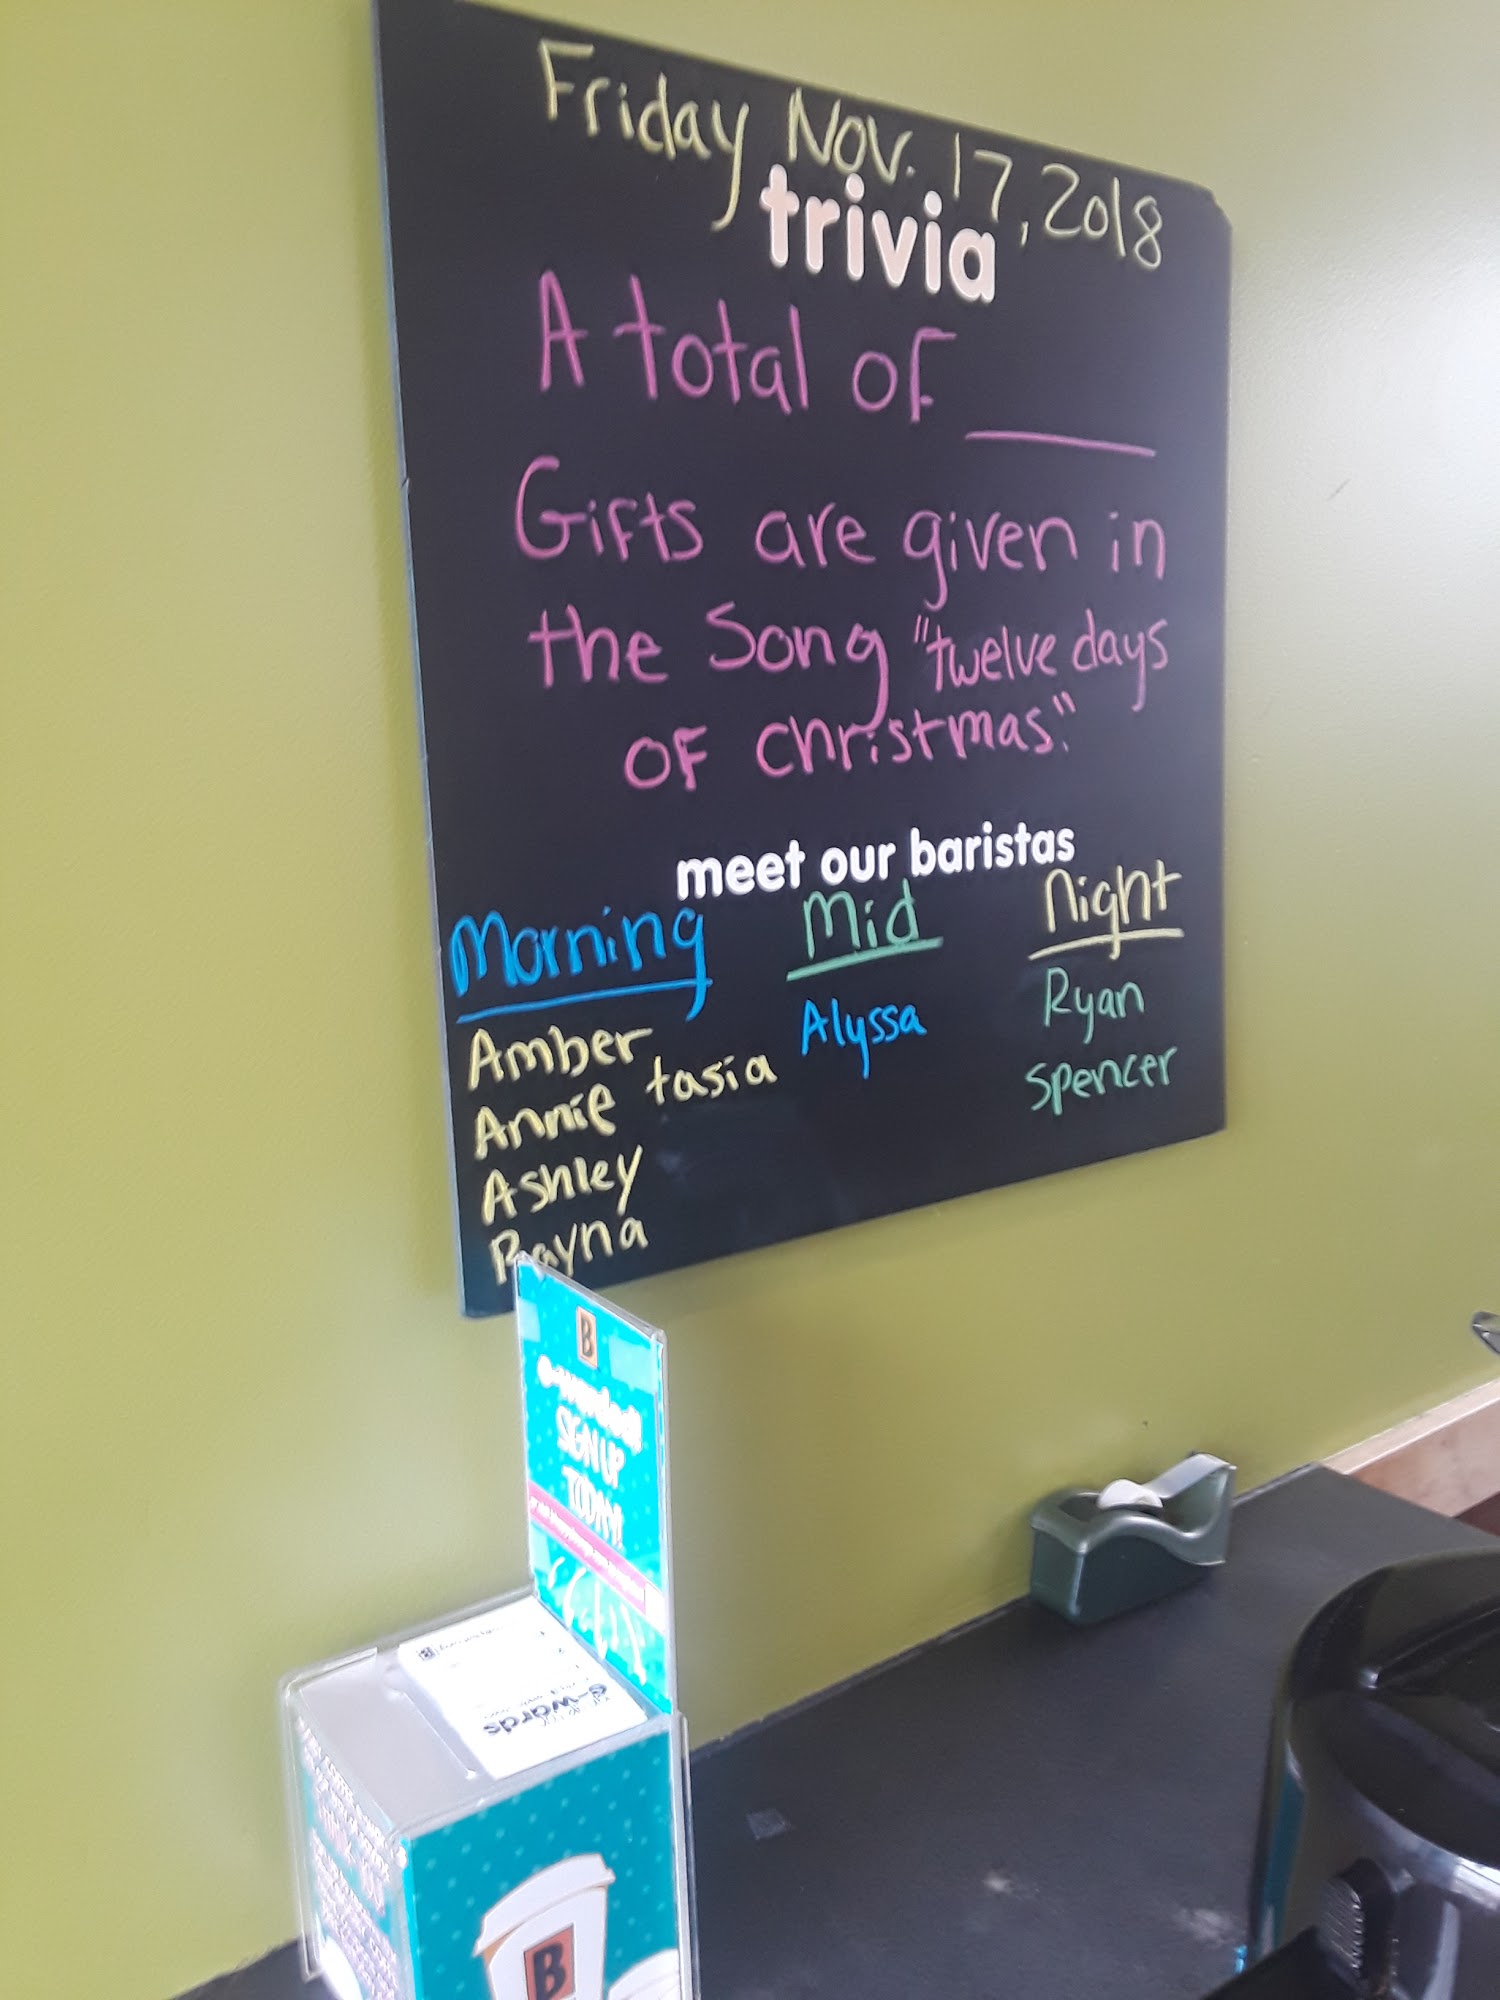 Friday Nov. 17, 2018
trivia
A total of ____
Gifts are given in
the Song "twelve days
of christmas."
meet our baristas
Morning
Amber
Annie tasia
Ashley
Rayna
Mid
Alyssa
Night
Ryan
Spencer
B
e-wards
SIGN UP
TODAY!
B
e-wards
B